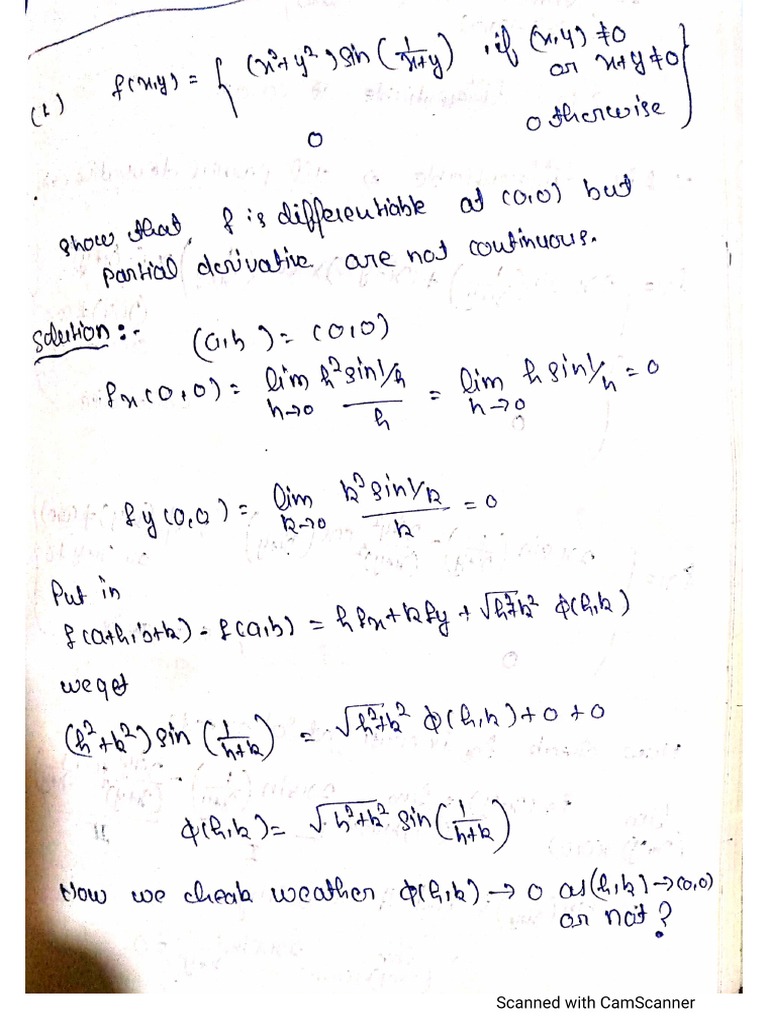 (2) f(x,y) = { (x²+y²) sin (1/(x+y)) , if (x,y) ≠0
or x+y≠0
0 otherwise }
show that, f is differentiable at (0,0) but
partial derivative are not continuous.
Solution :- (a,b) = (0,0)
fx(0,0) = lim h→0 h² sin 1/h / h = lim h→0 h sin 1/h = 0
fy(0,0) = lim k→0 k² sin 1/k / k = 0
Put in
f(a+h, b+k) - f(a,b) = h fx + k fy + √h²+k² ϕ(h,k)
we get
(h²+k²) sin (1/(h+k)) = √h²+k² ϕ(h,k) + 0 + 0
ϕ(h,k) = √h²+k² sin (1/(h+k))
Now we cheak weather ϕ(h,k) → 0 as (h,k) → (0,0)
or not?
Scanned with CamScanner